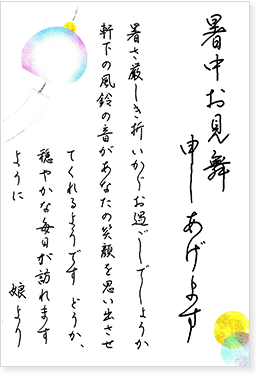 暑中お見舞
申しあげます
暑さ厳しき折いかゞお過ごしでしょうか
軒下の風鈴の音があなたの笑顔を思い出させ
てくれるようです どうか、
穏やかな毎日が訪れます
ように
娘より